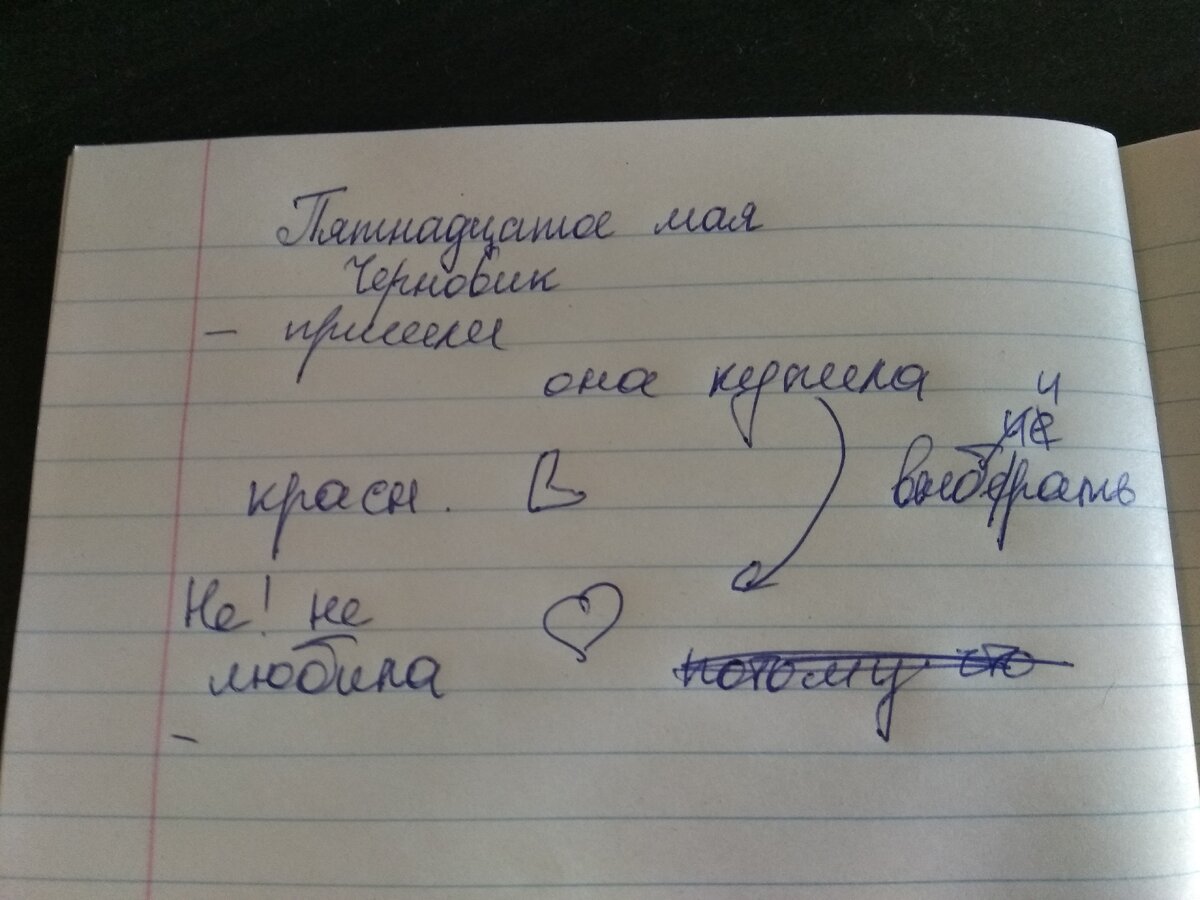 Пятнадцатое мая
Черновик
– пришли
она купила
и
не
красн. В выбрать
Не! не
любила
потому что
–